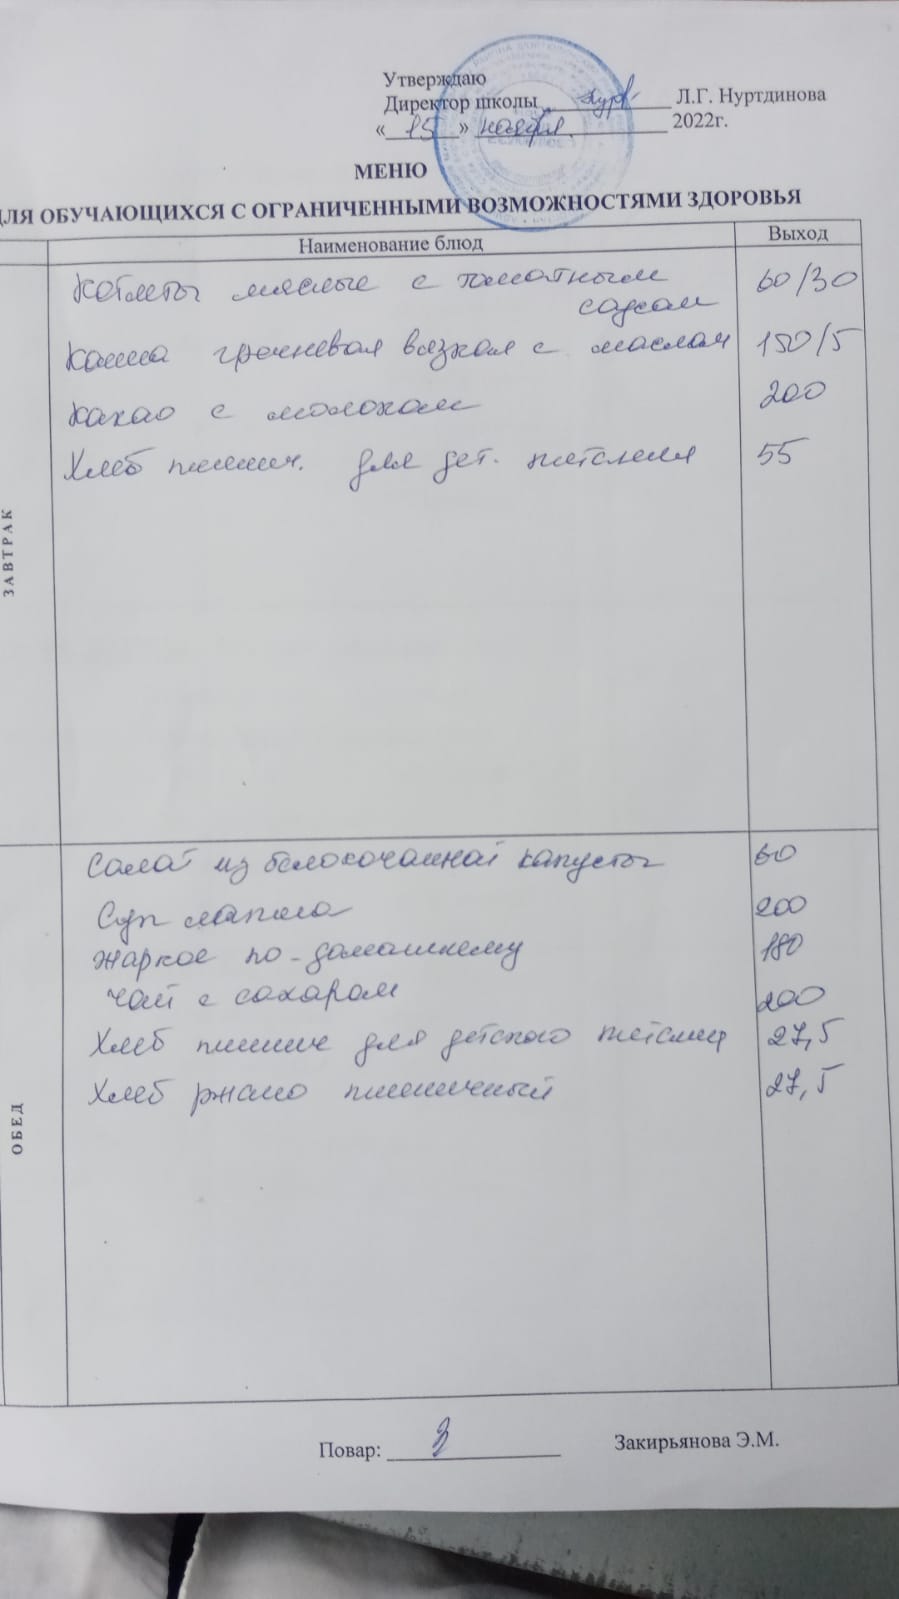 Утверждаю
Директор школы Л.Г. Нуртдинова
«15» ноября 2022г.
МЕНЮ
ДЛЯ ОБУЧАЮЩИХСЯ С ОГРАНИЧЕННЫМИ ВОЗМОЖНОСТЯМИ ЗДОРОВЬЯ
Наименование блюд Выход
ЗАВТРАК
Котлеты мясные с томатным 60/30
соусом
Каша гречневая вязкая с маслом 150/5
Какао с молоком 200
Хлеб пшенич. для дет. питания 55
ОБЕД
Салат из белокочанной капусты 60
Суп лапша 200
Жаркое по-домашнему 180
Чай с сахаром 200
Хлеб пшенич для детского питания 27,5
Хлеб ржано пшеничный 27,5
Повар: Закирьянова Э.М.